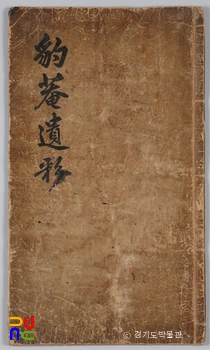 豹菴遺彩
ⓒ 경기도박물관